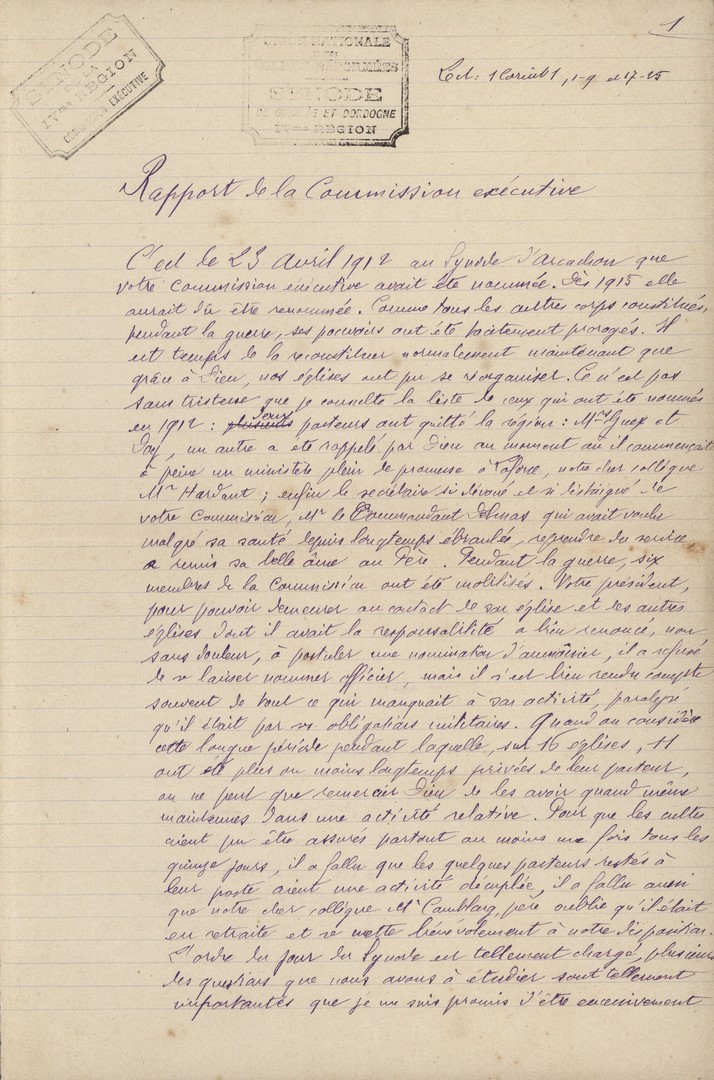 1
SYNODE
DE LA
IVme REGION
COMMISSION EXÉCUTIVE
UNION NATIONALE
DES
RÉFORMÉES
SYNODE
DE GUYENNE ET DORDOGNE
IVme REGION
Lect: 1 Corinth 1, 1-9 et 17-25
Rapport de la Commission exécutive
C'est le 23 Avril 1912 au Synode d'Arcachon que
votre Commission exécutive avait été nommée. Dès 1915 elle
aurait dû être renommée. Comme tous les autres corps constitués,
pendant la guerre, ses pouvoirs ont été tacitement prorogés. Il
est temps de la reconstituer normalement maintenant que
grâce à Dieu, nos églises ont pu se réorganiser. Ce n'est pas
sans tristesse que je consulte la liste de ceux qui ont été nommés
en 1912 : plusieurs deux pasteurs ont quitté la région : Mrs Guex et
Foy, un autre a été rappelé par Dieu au moment où il commençait
à peine un ministère plein de promesse à Laforce, notre cher collègue
Mr Hardant ; enfin le secrétaire si dévoué et si distingué de
votre Commission, Mr le Commandant Delmas qui avait voulu
malgré sa santé depuis longtemps ébranlée, reprendre du service
a remis sa belle âme au Père. Pendant la guerre, six
membres de la Commission ont été mobilisés. Votre président,
pour pouvoir demeurer au contact de son église et des autres
églises dont il avait la responsabilité a bien renoncé, non
sans douleur, à postuler une nomination d'aumônier, il a refusé
de se laisser nommer officier, mais il s'est bien rendu compte
souvent de tout ce qui manquait à son activité, paralysé
qu'il était par ses obligations militaires. Quand on considère
cette longue période pendant laquelle, sur 16 églises, 11
ont été plus ou moins longtemps privées de leur pasteur,
on ne peut que remercier Dieu de les avoir quand même
maintenues dans une activité relative. Pour que les cultes
aient pu être assurés partout au moins une fois tous les
quinze jours, il a fallu que les quelques pasteurs restés à
leur poste aient une activité décuplée, il a fallu aussi
que notre cher collègue Mr père oublie qu'il était
en retraite et se mette bénévolement à notre disposition.
L'ordre du jour du Synode est tellement chargé, plusieurs
des questions que nous avons à étudier sont tellement
importantes que je me suis promis d'être excessivement